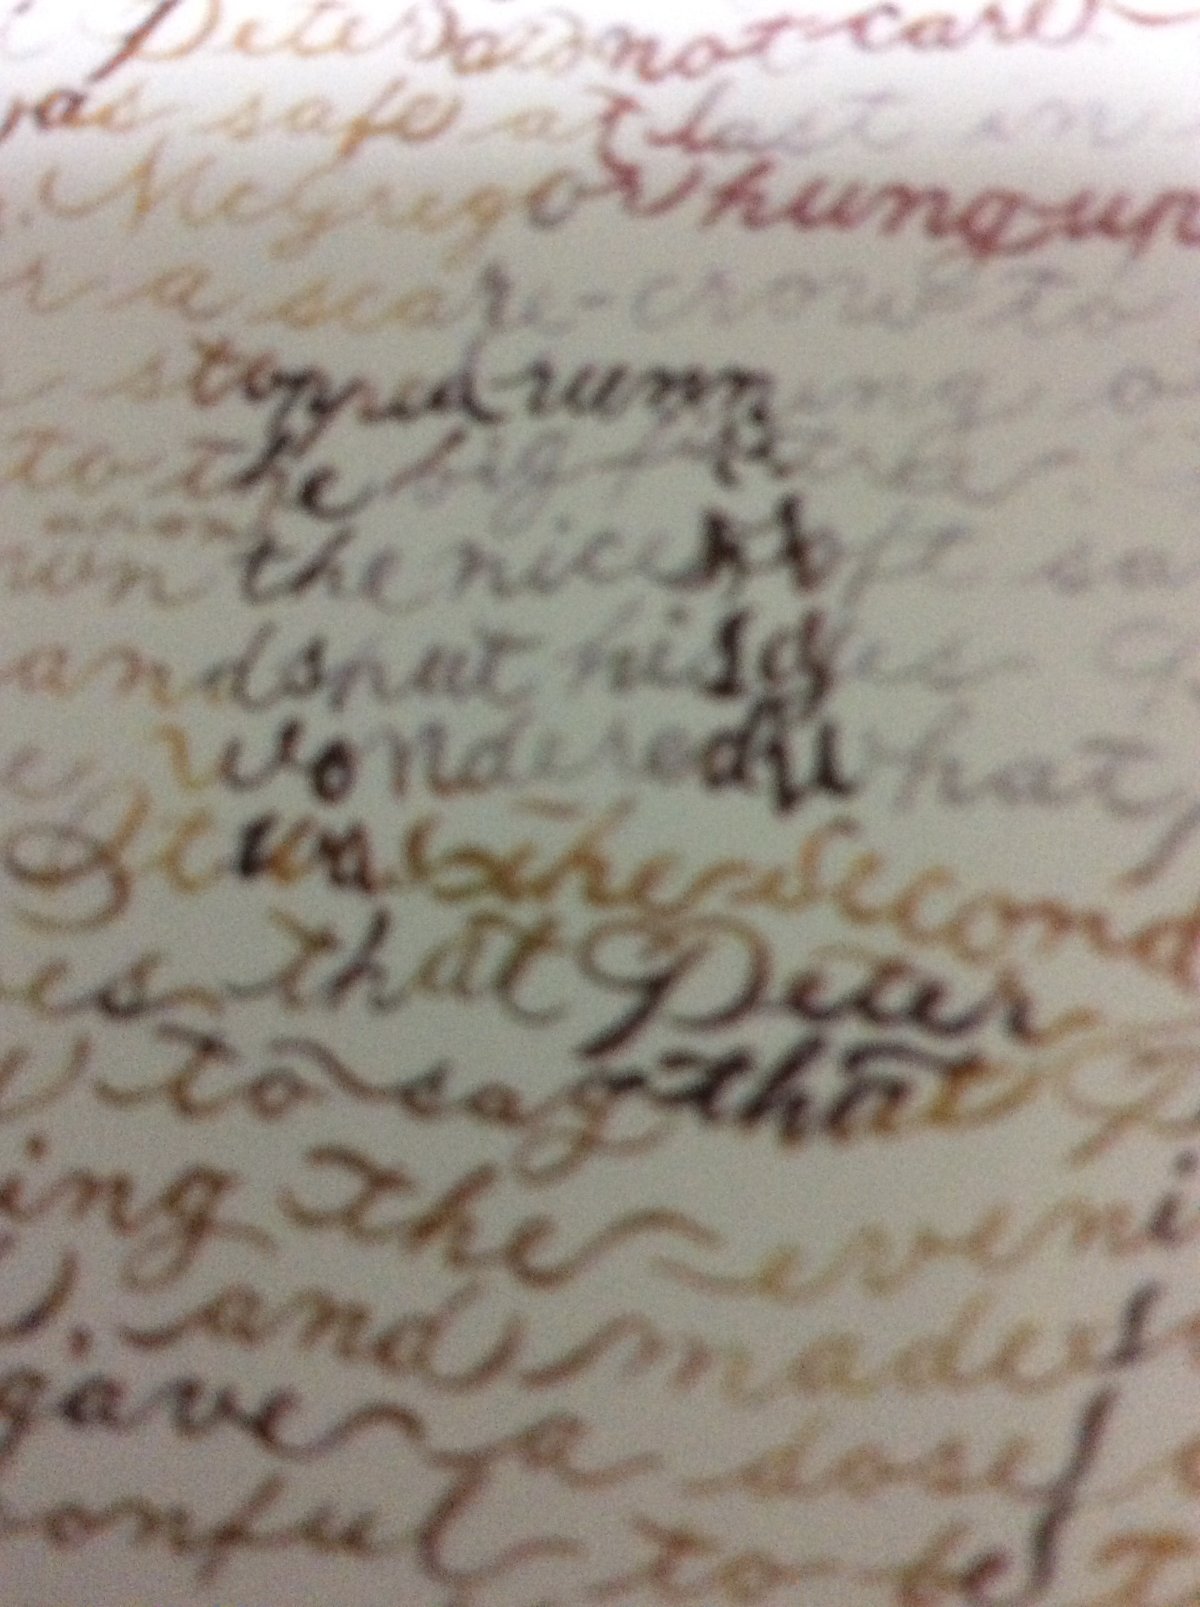 Peter did not care.
as safe at last in
. McGregor hung up
r a scare-crow to
stopped running o
to the big fir tre
upon the nice soft sa
and shut his eyes.
wondered what
It was the second
es that Peter
to say that P
ing the eveni
, and made
gave a dose
onful to be